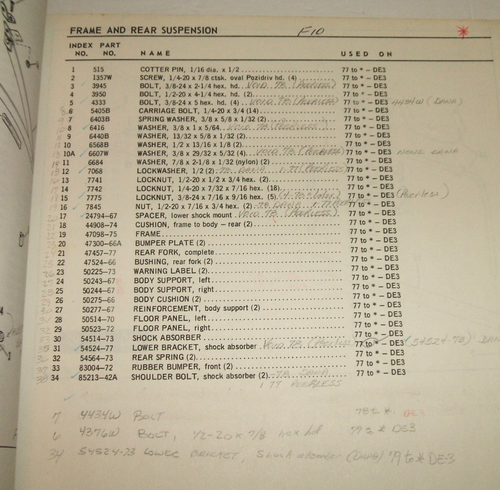 FRAME AND REAR SUSPENSION F10 *
INDEX NO. PART NO. NAME USED ON
1 515 COTTER PIN, 1/16 dia. x 1/2 77 to * – DE3
2 1557W SCREW, 1/4-20 x 7/8 ctsk. oval Pozidriv hd. (4) 77 to * – DE3
3 3945 BOLT, 3/8-24 x 2-1/4 hex. hd. VOID 78 (Peerless) 77 to * – DE3
4 3950 BOLT, 1/2-20 x 4-1/4 hex. hd. (2) 77 to * – DE3
5 4333 BOLT, 3/8-24 x 5 hex. hd. (4) VOID 78 (Peerless) 77 to * – DE3 4434W (DANA)
6 5405B CARRIAGE BOLT, 1/4-20 x 3/4 (14) 77 to * – DE3
7 6403B SPRING WASHER, 3/8 x 5/8 x 1/32 (2) 77 to * – DE3
8 6416 WASHER, 3/8 x 1 x 5/64 VOID 78 (Peerless) 77 to * – DE3
9 6440B WASHER, 13/32 x 5/8 x 1/32 (2) 77 to * – DE3
10 6568B WASHER, 1/2 x 13/16 x 1/8 (2) 77 to * – DE3
10A 6607W WASHER, 3/8 x 29/32 x 5/32 (4) VOID 78 (Peerless) 77 to * – DE3 NONE DANA
11 6684 WASHER, 7/8 x 2-1/8 x 1/32 (nylon) (2) 77 to * – DE3
12 7068 LOCKWASHER, 1/2 (2) 78 DANA 77 (Peerless) 77 to * – DE3
13 7741 LOCKNUT, 1/2-20 x 1/2 x 3/4 hex. (2) 77 to * – DE3
14 7742 LOCKNUT, 1/4-20 x 7/32 x 7/16 hex. (18) 77 to * – DE3
15 7775 LOCKNUT, 3/8-24 x 7/16 x 9/16 hex. (5) 77 to * – DE3 (Peerless)
16 7845 NUT, 1/2-20 x 7/16 x 3/4 hex. (2) 78 DANA 77 to * – DE3
17 24794-67 SPACER, lower shock mount VOID 78 (Peerless) 77 to * – DE3
18 44908-74 CUSHION, frame to body – rear (2) 77 to * – DE3
19 47098-75 FRAME 77 to * – DE3
20 47300-66A BUMPER PLATE (2) 77 to * – DE3
21 47457-77 REAR FORK, complete 77 to * – DE3
22 47524-66 BUSHING, rear fork (2) 77 to * – DE3
23 50225-73 WARNING LABEL (2) 77 to * – DE3
24 50243-67 BODY SUPPORT, left 77 to * – DE3
25 50244-67 BODY SUPPORT, right 77 to * – DE3
26 50275-66 BODY CUSHION (2) 77 to * – DE3
27 50277-67 REINFORCEMENT, body support (2) 77 to * – DE3
28 50514-70 FLOOR PANEL, left 77 to * – DE3
29 50523-72 FLOOR PANEL, right 77 to * – DE3
30 54514-73 SHOCK ABSORBER 77 to * – DE3
31 54524-77 LOWER BRACKET, shock absorber VOID 78 (Peerless) 77 to * – DE3 (54524-73) DANA
32 54564-73 REAR SPRING (2) 77 to * – DE3
33 83004-72 RUBBER BUMPER, front (2) 77 to * – DE3
34 85213-42A SHOULDER BOLT, shock absorber (2) 78 DANA 77 to * – DE3
77 PEERLESS
7 4434W BOLT 78 to * DE3
6 4376W BOLT, 1/2-20 x 7/8 hex hd 77 to * DE3
34 54524-73 LOWER BRACKET, Shock absorber (DANA) 77 to * DE-3